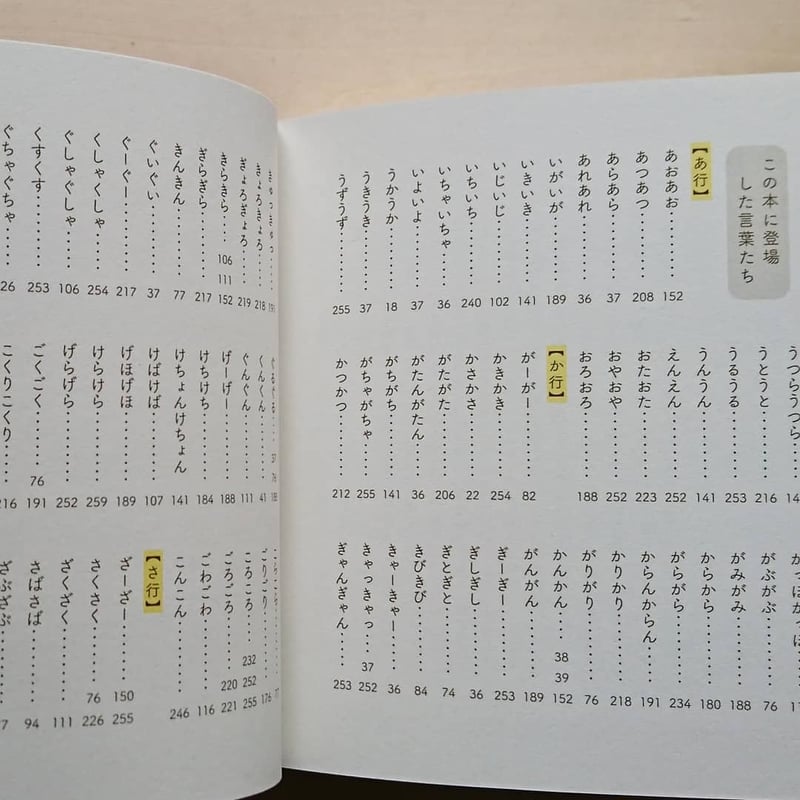 この本に登場
した言葉たち
【あ行】
あおあお………152
あつあつ………208
あらあら………37
あれあれ………36
いがいが………189
いきいき………141
いじいじ………102
いちいち………240
いちゃいちゃ………36
いよいよ………37
うかうか………18
うきうき………37
うずうず………255
うつらうつら………
うとうと………216
うるうる………253
うんうん………141
えんえん………252
おたおた………223
おやおや………252
おろおろ………188
【か行】
がーがー………82
かきかき………254
かさかさ………22
がたがた………206
がたんがたん………36
がちがち………141
がちゃがちゃ………255
かつかつ………212
がぶがぶ………76
がみがみ………188
からから………180
がらがら………234
からんからん………191
かりかり………218
がりがり………76
かんかん………38 39 152
がんがん………189
ぎーぎー………253
ぎしぎし………36
ぎとぎと………74
きびきび………84
きゃーきゃー………36
きゃっきゃっ………37 252
ぎゃんぎゃん………253
きゅっきゅっ………191
きょろきょろ………218
ぎょろぎょろ………219
きらきら………106 111 152
ぎらぎら………217
きんきん………77
ぐいぐい………37
ぐーぐー………217
くしゃくしゃ………254
ぐしゃぐしゃ………106
くすくす………253
ぐちゃぐちゃ………26
ぐるぐる………37 76 188
くんくん………41
ぐんぐん………111
げーげー………188
けちけち………184
けちょんけちょん 141
けばけば………107
げほげほ………189
けらけら………259
げらげら………252
ごくごく………76 191
こくりこくり………216
ごりごり………176
ころころ………232 252 255
ごろごろ………220 221
ごわごわ………116
こんこん………246
【さ行】
ざーざー………150 255
さくさく………76 226
ざくざく………111
さばさば………94
ざぶざぶ………